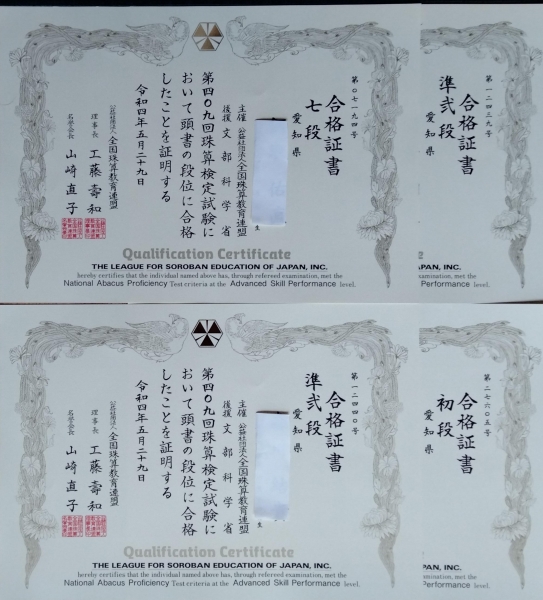 第〇七一九四号
合格証書
七段
愛知県
主催 公益社団法人全国珠算教育連盟
後援 文部科学省
第四〇九回珠算検定試験に
おいて頭書の段位に合格
したことを証明する
令和四年五月二十九日
公益社団法人全国珠算教育連盟
理事長 工藤壽和
名誉会長 山崎直子
Qualification Certificate
THE LEAGUE FOR SOROBAN EDUCATION OF JAPAN, INC.
hereby certifies that the individual named above has, through refereed examination, met the
National Abacus Proficiency Test criteria at the Advanced Skill Performance level.
第一二四三九号
合格証書
準弐段
愛知県
APAN, INC.
examination, met the
Performance level.
第一二四四〇号
合格証書
準弐段
愛知県
主催 公益社団法人全国珠算教育連盟
後援 文部科学省
第四〇九回珠算検定試験に
おいて頭書の段位に合格
したことを証明する
令和四年五月二十九日
公益社団法人全国珠算教育連盟
理事長 工藤壽和
名誉会長 山崎直子
Qualification Certificate
THE LEAGUE FOR SOROBAN EDUCATION OF JAPAN, INC.
hereby certifies that the individual named above has, through refereed examination, met the
National Abacus Proficiency Test criteria at the Advanced Skill Performance level.
第二七六〇五号
合格証書
初段
愛知県
PAN, INC.
examination, met the
Performance level.